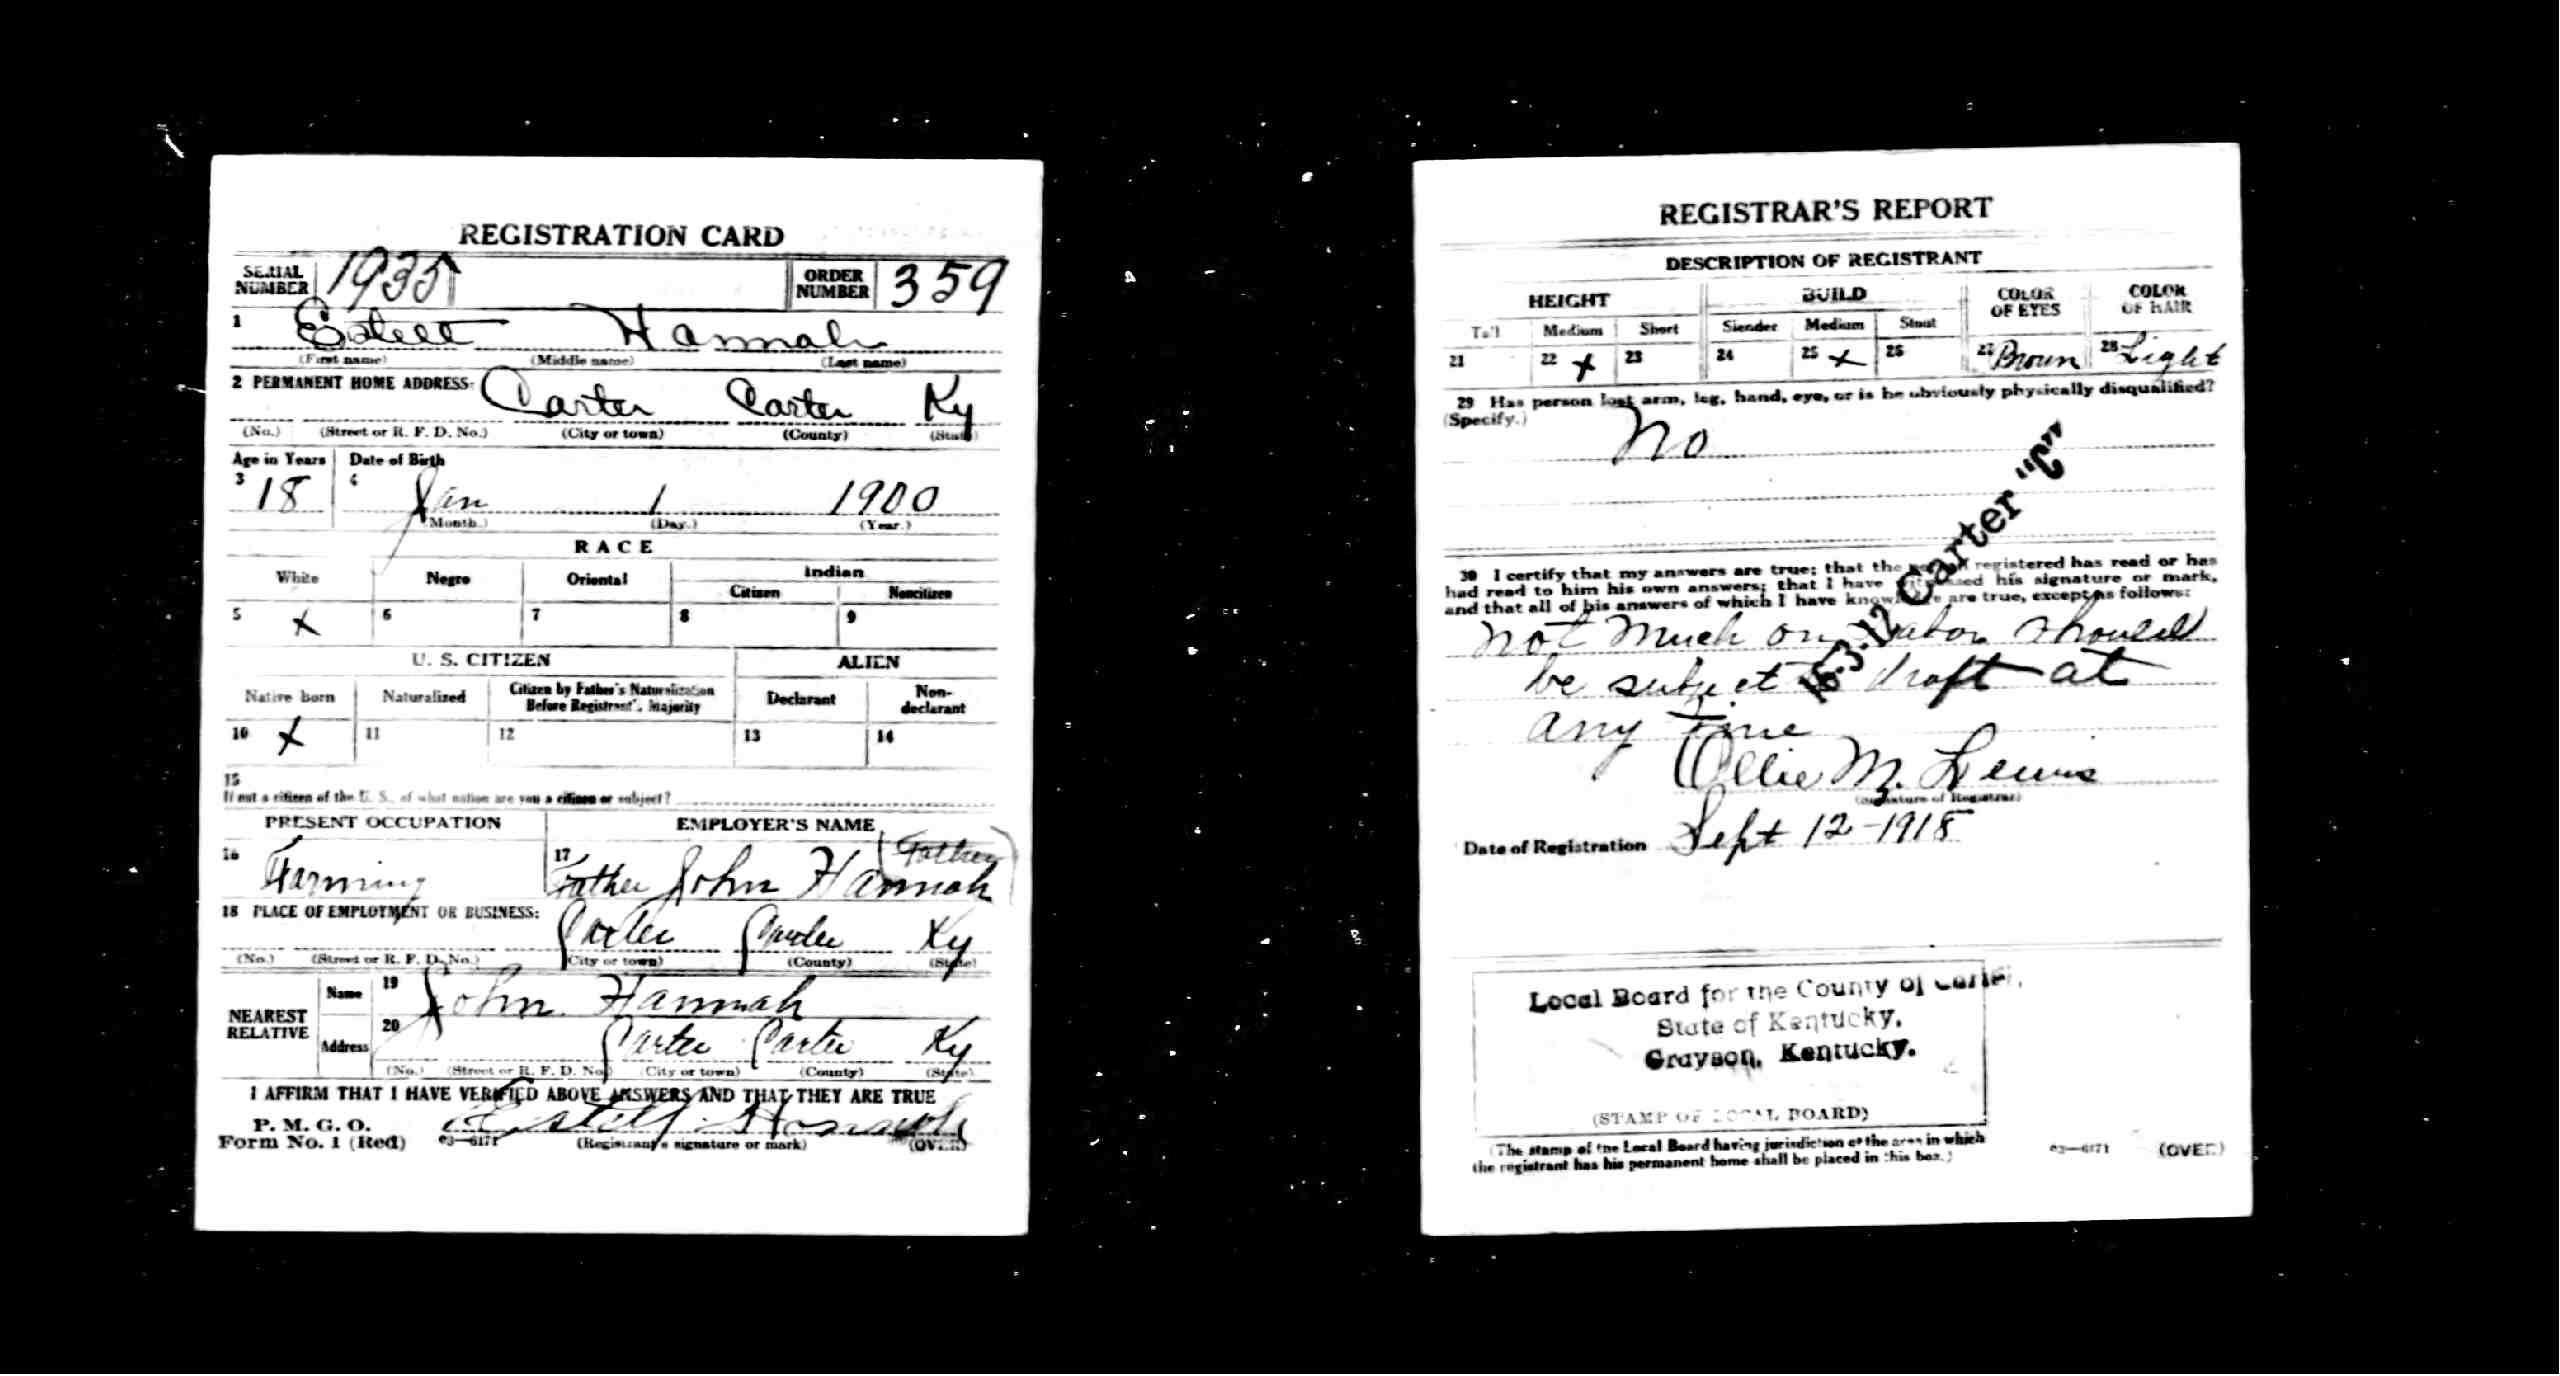 REGISTRATION CARD
SERIAL NUMBER 1935 ORDER NUMBER 359
1 Estell Hannah
(First name) (Middle name) (Last name)
2 PERMANENT HOME ADDRESS: Carter Carter Ky
(No.) (Street or R. F. D. No.) (City or town) (County) (State)
Age in Years Date of Birth
3 18 4 Jan 1 1900
(Month.) (Day.) (Year.)
RACE
White Negro Oriental Indian
Citizen Noncitizen
5 X 6 7 8 9
U. S. CITIZEN ALIEN
Native Born Naturalized Citizen by Father's Naturalization Before Registrant's Majority Declarant Non-declarant
10 X 11 12 13 14
15
If not a citizen of the U. S., of what nation are you a citizen or subject?
PRESENT OCCUPATION EMPLOYER'S NAME
(Father)
16 Farming 17 Father John Hannah
18 PLACE OF EMPLOYMENT OR BUSINESS:
Carter Carter Ky
(No.) (Street or R. F. D. No.) (City or town) (County) (State)
NEAREST RELATIVE Name 19 John Hannah
Address 20 Carter Carter Ky
(No.) (Street or R. F. D. No.) (City or town) (County) (State)
I AFFIRM THAT I HAVE VERIFIED ABOVE ANSWERS AND THAT THEY ARE TRUE
P. M. G. O.
Form No. 1 (Red) 03—6171 Estell Hannah
(Registrant's signature or mark) (OVER)
REGISTRAR'S REPORT
DESCRIPTION OF REGISTRANT
HEIGHT BUILD COLOR OF EYES COLOR OF HAIR
Tall Medium Short Slender Medium Stout
21 22 X 23 24 25 X 26 27 Brown 28 Light
29 Has person lost arm, leg, hand, eye, or is he obviously physically disqualified?
(Specify.) No
30 I certify that my answers are true; that the person registered has read or has
had read to him his own answers; that I have witnessed his signature or mark,
and that all of his answers of which I have knowledge are true, except as follows:
16-3-12 Carter "C"
Not Much on Labor should
be subject draft at
any Time
Ollie M. Lewis
(Signature of Registrar)
Date of Registration Sept 12-1918
Local Board for the County of Carter,
State of Kentucky,
Grayson, Kentucky.
(STAMP OF LOCAL BOARD)
(The stamp of the Local Board having jurisdiction of the area in which
the registrant has his permanent home shall be placed in this box.)
03—6171 (OVER)